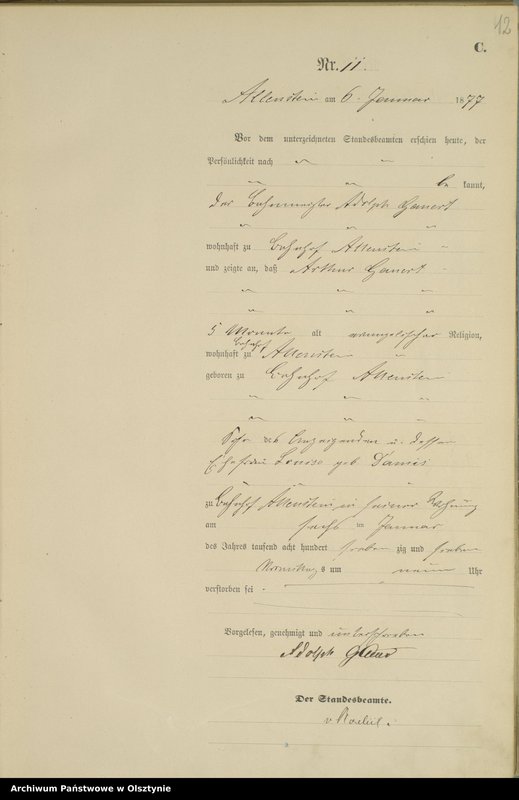 12
C.
Nr. 11.
Allenstein am 6. Januar 1877
Vor dem unterzeichneten Standesbeamten erschien heute, der
Persönlichkeit nach
be kannt,
der Bahnmeister Adolph
wohnhaft zu Bahnhof Allenstein
und zeigte an, daß Arthur
5 Monate alt evangelischer Religion,
Bahnhof
wohnhaft zu Allenstein
geboren zu Bahnhof Allenstein
Sohn des Anzeigenden u. dessen
Ehefrau Louise geb
zu Bahnhof Allenstein in seiner Wohnung
am sechs ten Januar
des Jahres tausend acht hundert sieben zig und sieben
Vormittags um neun Uhr
verstorben sei
Vorgelesen, genehmigt und unterschrieben
Adolph
Der Standesbeamte.
Archiwum Państwowe w Olsztynie